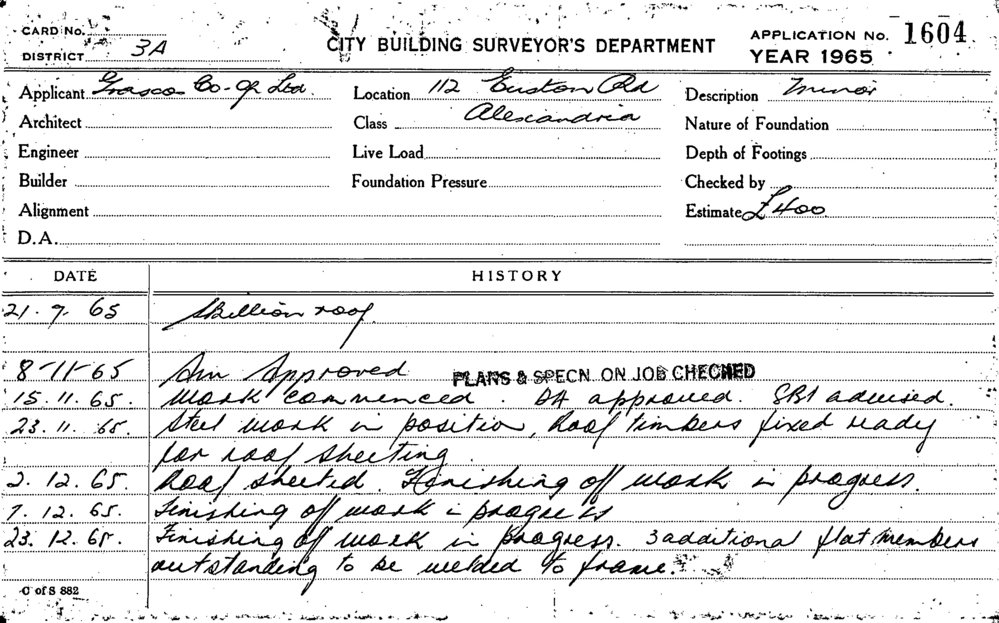 CARD No.
DISTRICT 3A
CITY BUILDING SURVEYOR'S DEPARTMENT
APPLICATION No. 1604
YEAR 1965
Applicant Grasco Co-Op Ltd. Location 112 Euston Rd Description Minor
Architect Class Alexandria Nature of Foundation
Engineer Live Load Depth of Footings
Builder Foundation Pressure Checked by
Alignment Estimate £400
D.A.
DATE HISTORY
21.9.65 Skillion roof.
8-11-65 Approved PLANS & SPECN. ON JOB CHECKED
15.11.65. Work commenced. DA approved. SBI advised.
23.11.65. Steel work in position, Roof timbers fixed ready
for roof sheeting.
2.12.65. Roof sheeted. Finishing off work in progress.
7.12.65. Finishing off work in progress
23.12.65. Finishing off work in progress. 3 additional flat members
outstanding to be welded to frame.
C of S 882